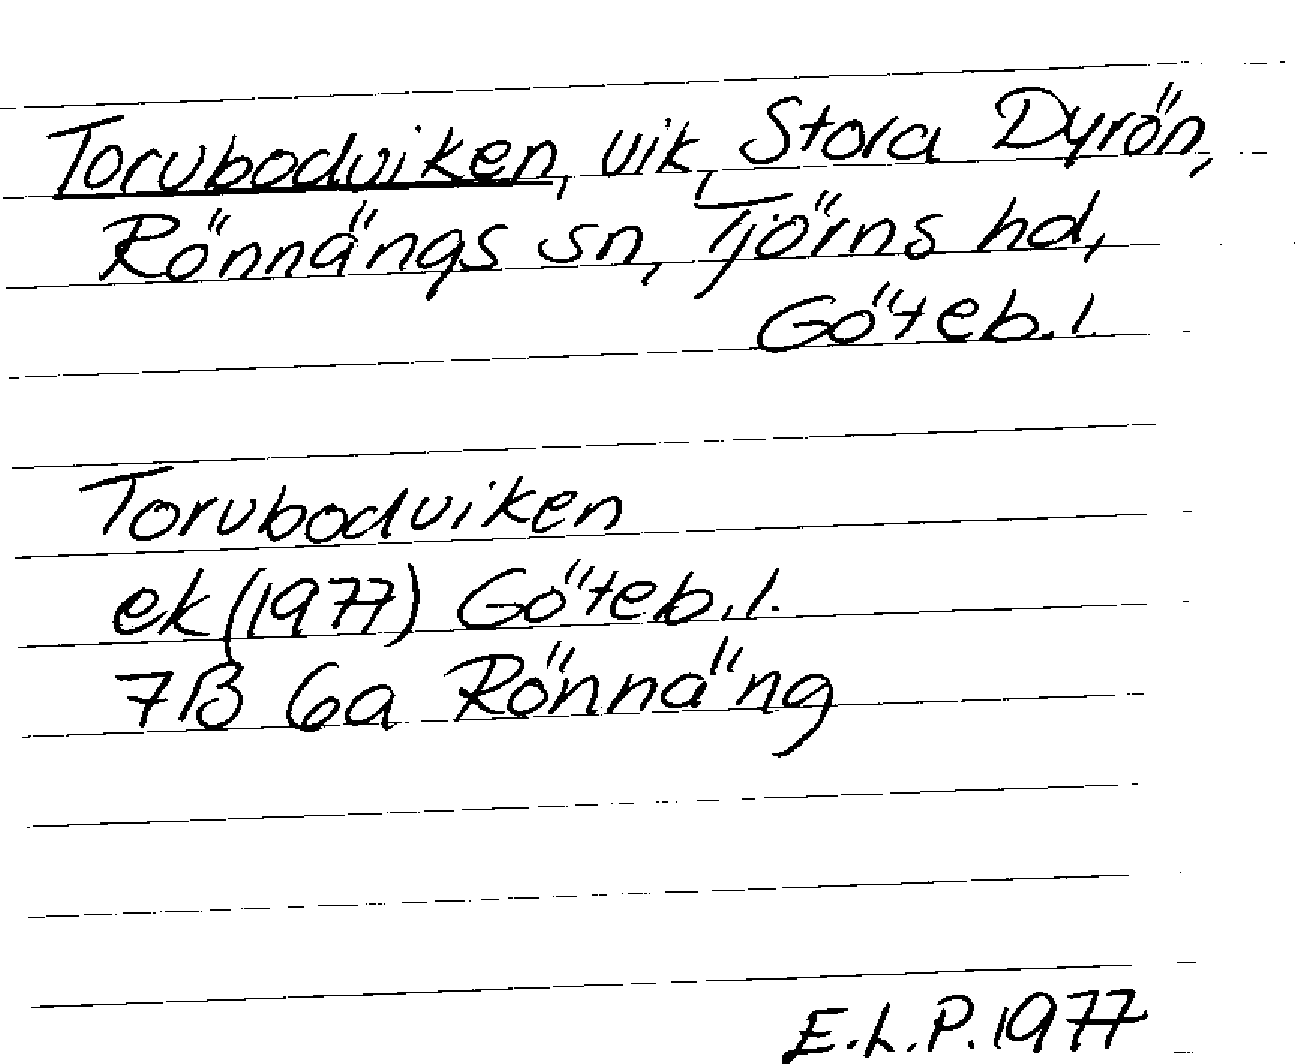 Torvbodviken, vik, Stora Dyrön,
Rönnängs sn, Tjörns hd,
Göteb. l.
Torvbodviken
ek (1977) Göteb. l.
7B 6a Rönnäng
E.L.P. 1977